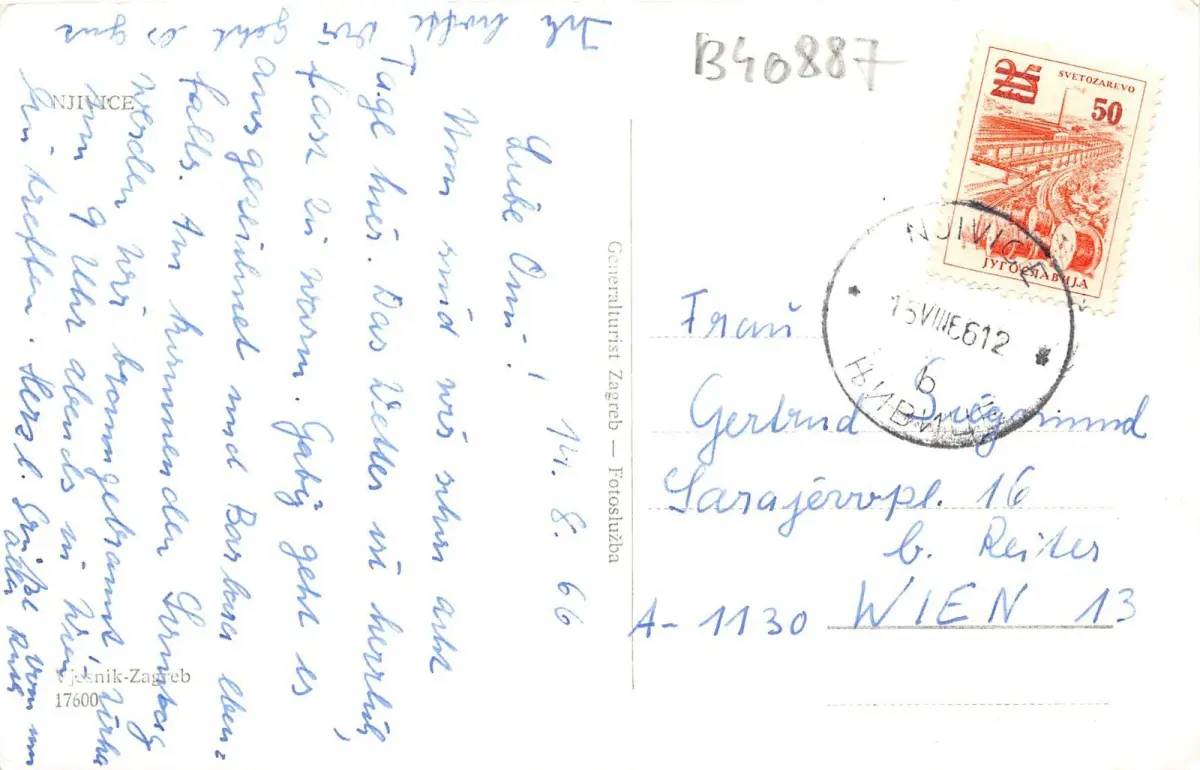 NJIVICE
14. 8. 66
Liebe Omi!
Nun sind wir schon acht
Tage hier. Das Wetter ist herrlich,
fast zu warm. Gaby geht es
ausgezeichnet und Barbara eben-
falls. Am kommenden Sonntag
werden wir braungebrannt
um 9 Uhr abends in Wien
eintreffen. Herzl. Grüße von
Ich hoffe Dir
geht es gut
Vjesnik-Zagreb
17600
Generalturist Zagreb — Fotoslužba
B40887
25
SVETOZAREVO
50
ЈУГОСЛАВИЈА
NJIVICE
15 VIII 66 12
b
ЊИВИЦЕ
Frau
Gertrud Siegmund
Sarajevopl. 16
b. Reiter
A-1130 WIEN 13